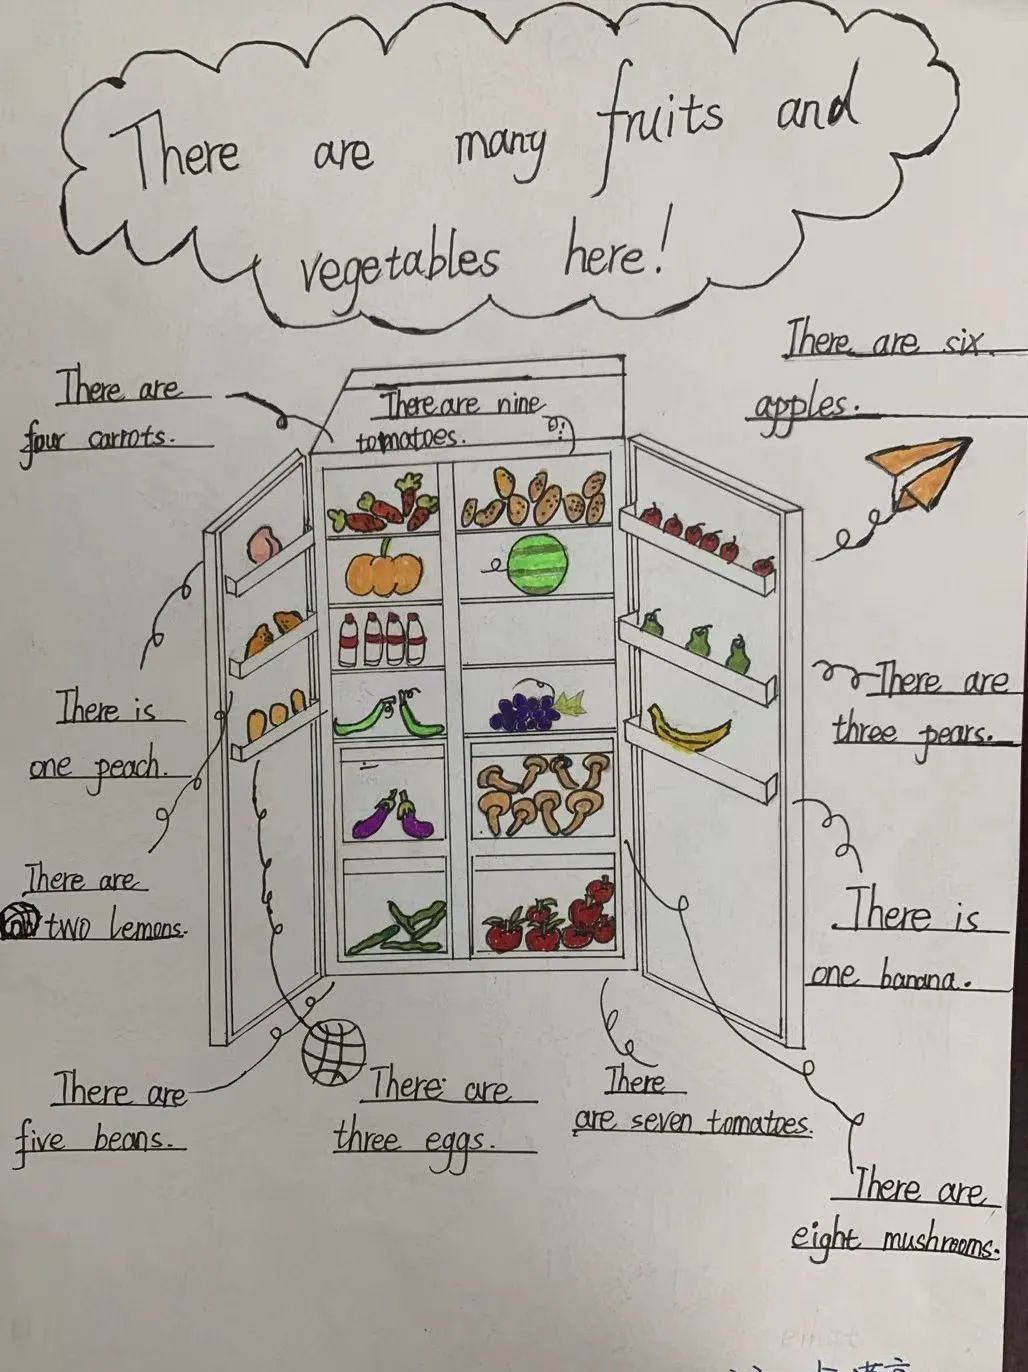 There are many fruits and
vegetables here!
There are six
apples.
There are
four carrots.
There are nine
tomatoes.
There is
one peach.
There are
three pears.
There are
two lemons.
There is
one banana.
There are
five beans.
There are
three eggs.
There
are seven tomatoes.
There are
eight mushrooms.